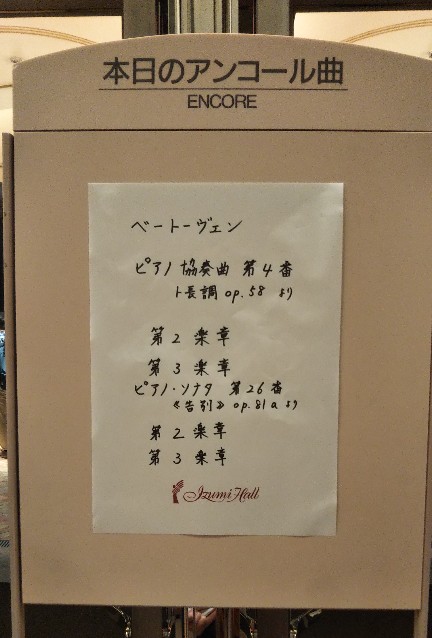 本日のアンコール曲
ENCORE
ベートーヴェン
ピアノ協奏曲 第4番
ト長調 op.58 より
第2楽章
第3楽章
ピアノ・ソナタ 第26番
《告別》 op.81a より
第2楽章
第3楽章
Izumi Hall